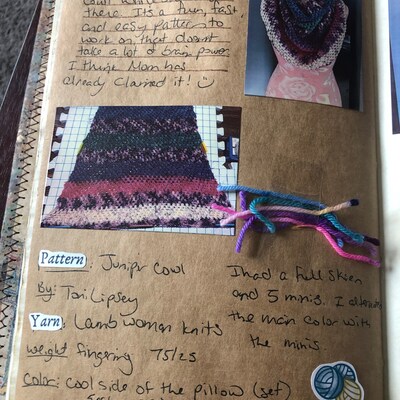 Cowl while
there. Its a fun, fast,
and easy pattern to
work on that doesnt
take a lot of brain power.
I think Mom has
already claimed it!
Pattern: Junipr Cowl
By: Toni Lipsey
Yarn: Lambwoman knits
weight fingering 75/25
Color: cool side of the pillow (set)
I had a full skien
and 5 minis. I
the main color with
the minis